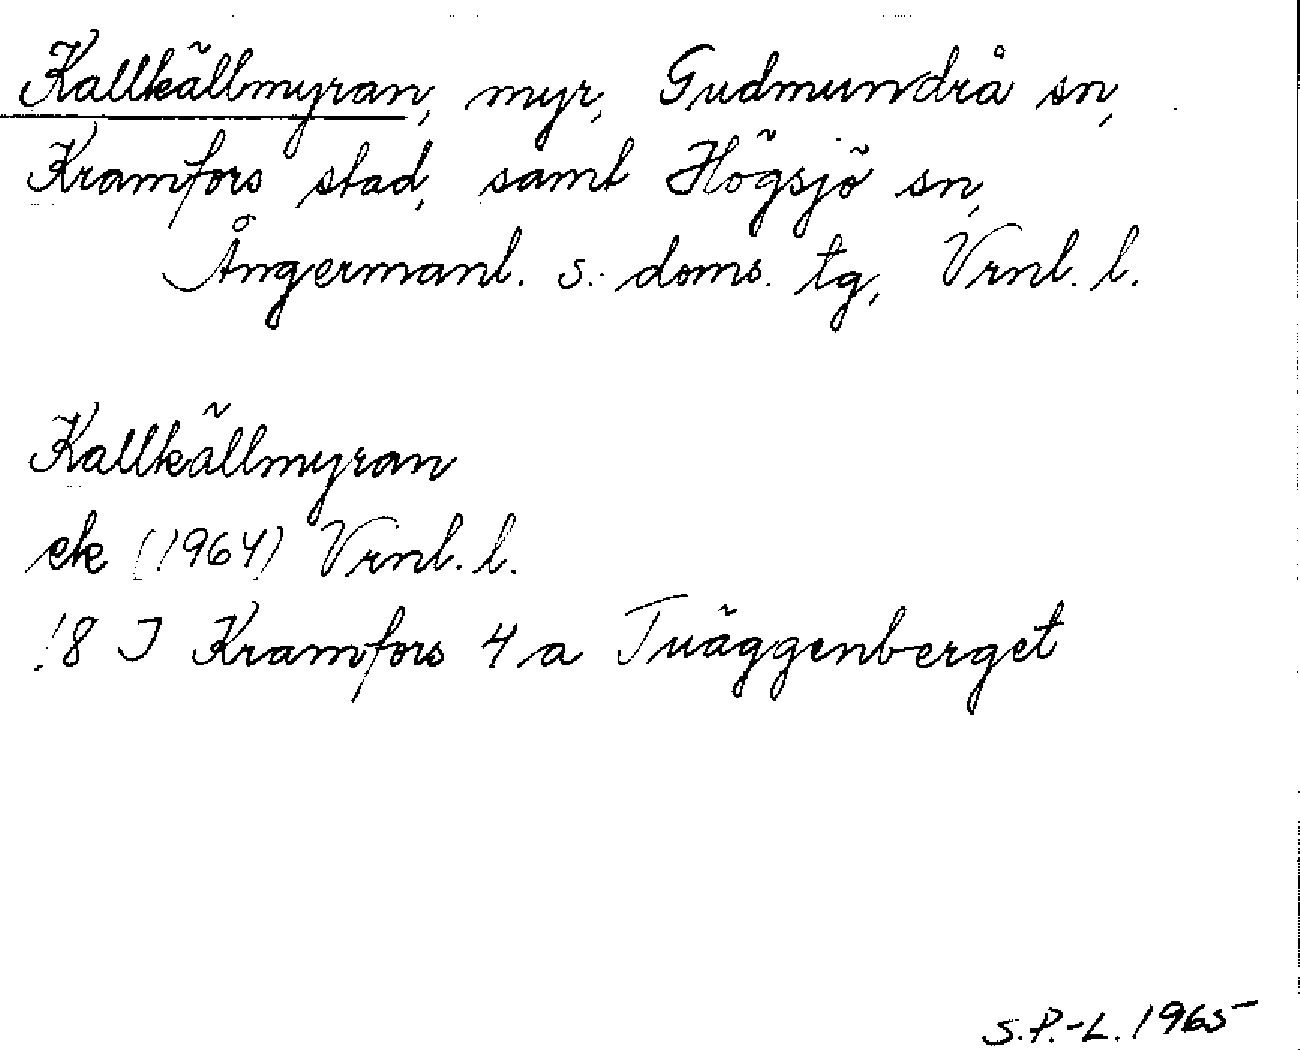 Kallkällmyran, myr, Gudmundrå sn,
Kramfors stad, samt Högsjö sn,
Ångermanl. s. doms. tg, Vrnl. l.
Kallkällmyran
ek (1964) Vrnl. l.
18 J Kramfors 4 a Tväggenberget
S.P.-L. 1965